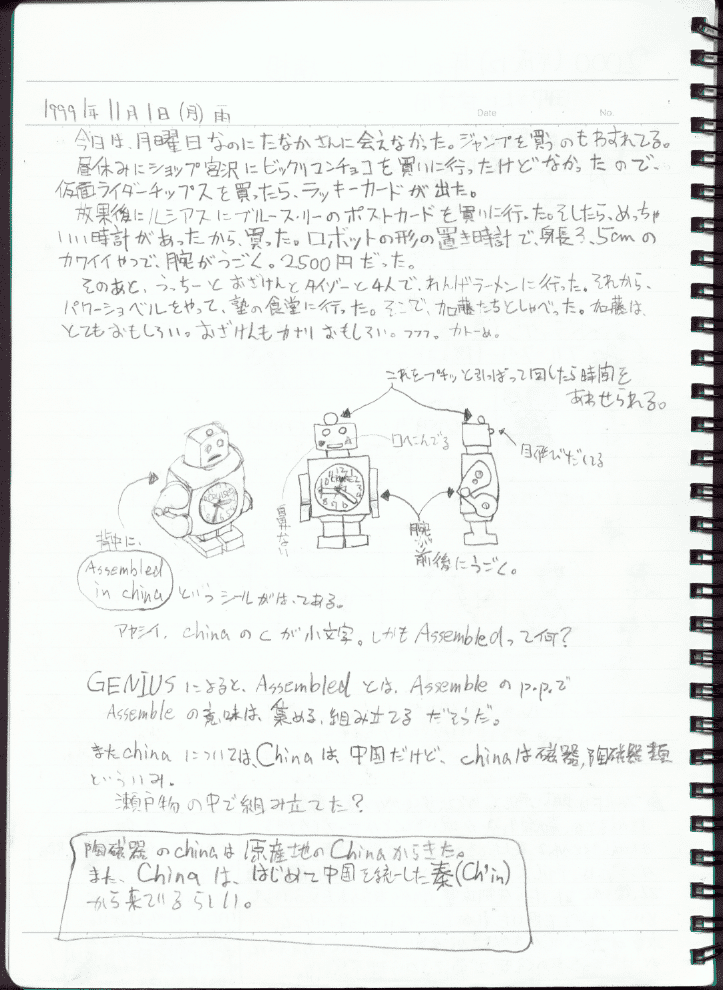 1999年11月1日(月)雨
Date No.
今日は、月曜日なのにたなかさんに会えなかった。ジャンプを買うのもわすれてる。
昼休みにショップ宮沢にビックリコンチョコを買いに行ったけどなかったので、
仮面ライダーチップスを買ったら、ラッキーカードが出た。
放課後にルシアスにブルース・リーのポストカードを買いに行った。そしたら、めっちゃ
いい時計があったから、買った。ロボットの形の置き時計で、身長3.5cmの
カワイイやつで、腕がうごく。2500円だった。
そのあと、うっちーとおざけんとタイゾーと4人で、れんげラーメンに行った。それから、
パワーショベルをやって、塾の食堂に行った。そこで、加藤たちとしゃべった。加藤は、
とてもおもしろい。おざけんもカナリおもしろい。フフフ。カトーめ。
これをプチッと引っぱって回したら時間を
あわせられる。
口へんでる
目飛びだしてる
鼻ない
腕が
前後にうごく。
背中に、
Assembled
in china
というシールがはってある。
アヤシイ、chinaのcが小文字。しかもAssembledって何?
GENIUSによると、Assembledとは、Assembleのp.p.で
Assembleの意味は、集める、組み立てるだそうだ。
またchinaについては、Chinaは、中国だけど、chinaは磁器,陶磁器類
といういみ。
瀬戸物の中で組み立てた?
陶磁器のchinaは原産地のChinaからきた。
また、Chinaは、はじめて中国を統一した秦(Ch'in)
から来ているらしい。